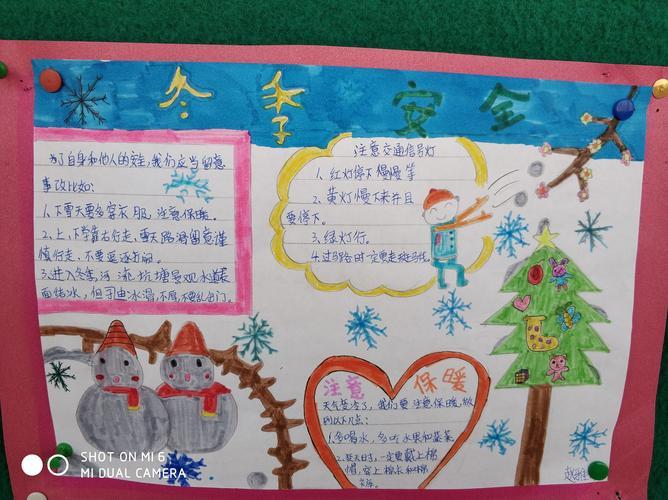 冬季安全
为了自身和他人的安全,我们应当留意
事故比如:
1.下雪天要多穿衣服,注意保暖。
2.上、下学靠右行走,雪天路滑留意谨
慎行走,不要追逐打闹。
3.进入冬季,河流,坑塘景观水道表
面结冰,但
注意交通信号灯
1.红灯停下慢慢等
2.黄灯慢下来并且
要停下。
3.绿灯行。
4.过马路时一定要走斑马线。
注意 保暖
天气变冷了,我们要注意保暖,做
到以下几点:
1.多喝水,多吃水果和蔬菜
2.冬天时,一定要戴上棉
帽,穿上棉衣和棉
SHOT ON MI 6
MI DUAL CAMERA